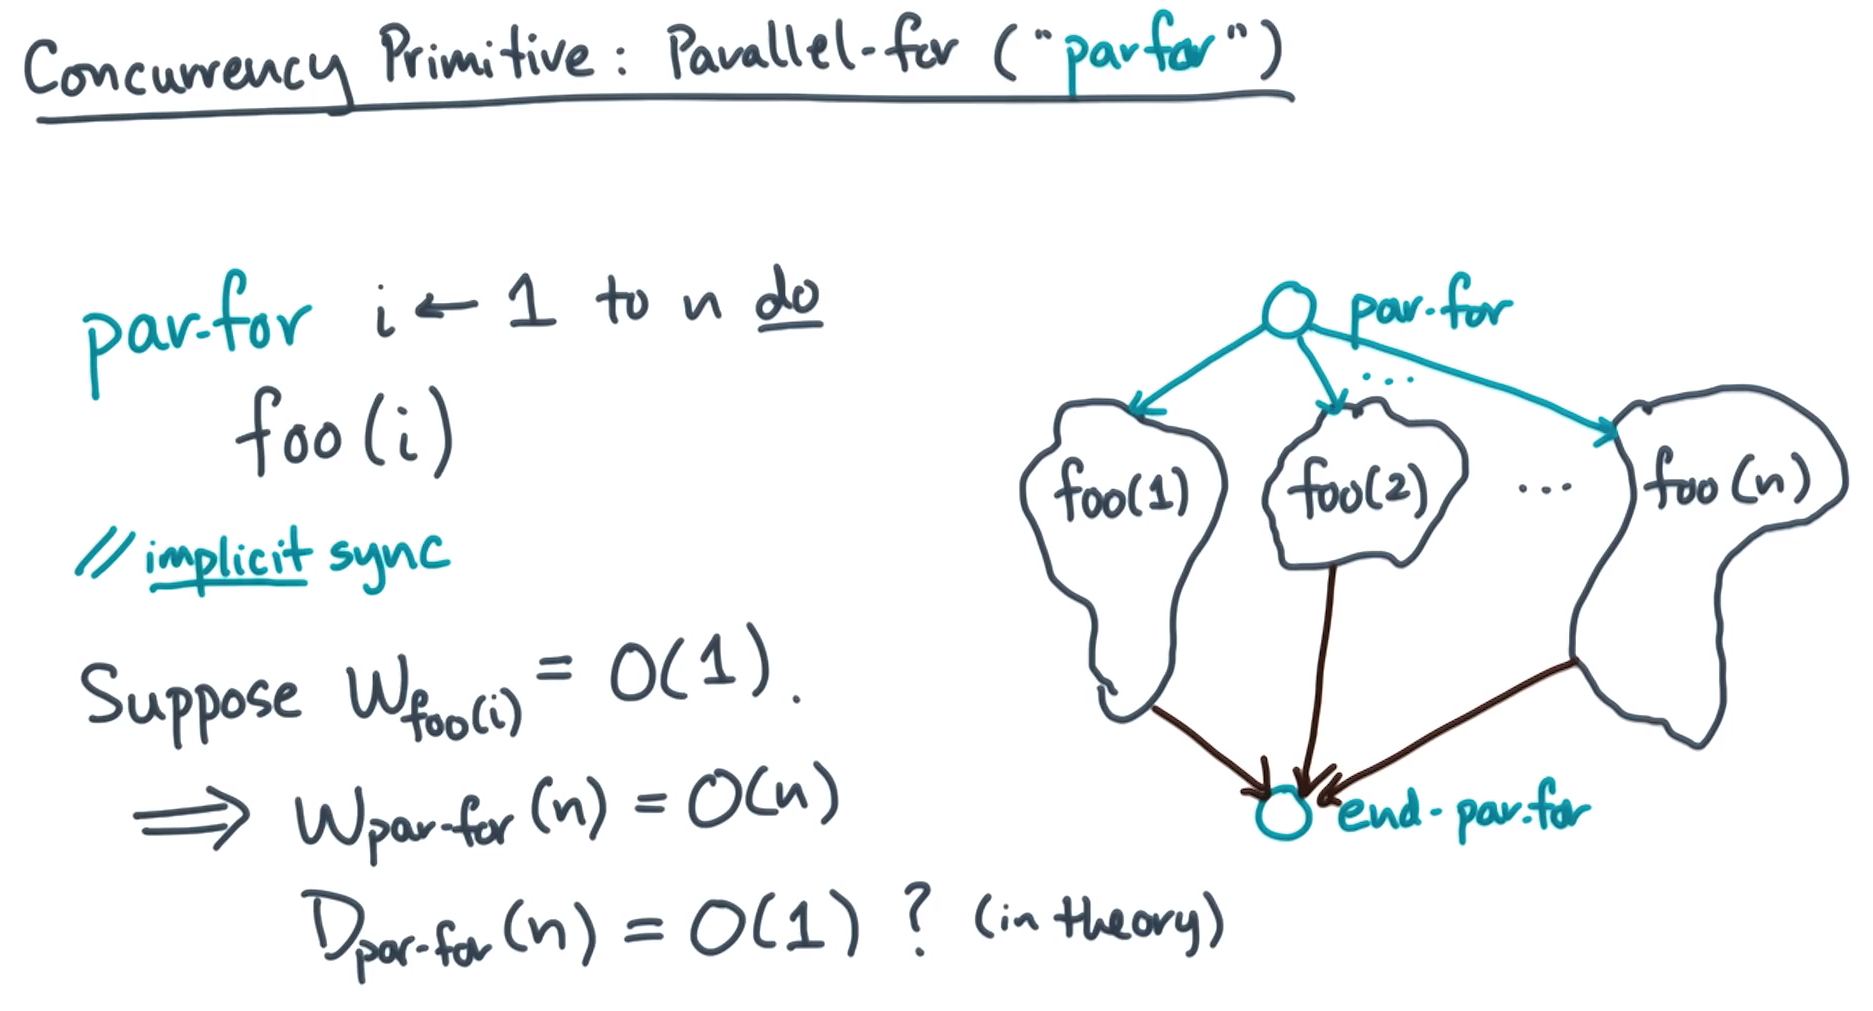 Concurrency Primitive: Parallel-for ("parfor")
par-for i ← 1 to n do
foo(i)
// implicit sync
Suppose W_foo(i) = O(1).
⟹ W_par-for(n) = O(n)
D_par-for(n) = O(1) ? (in theory)
par-for
...
foo(1)
foo(2)
...
foo(n)
end-par-for